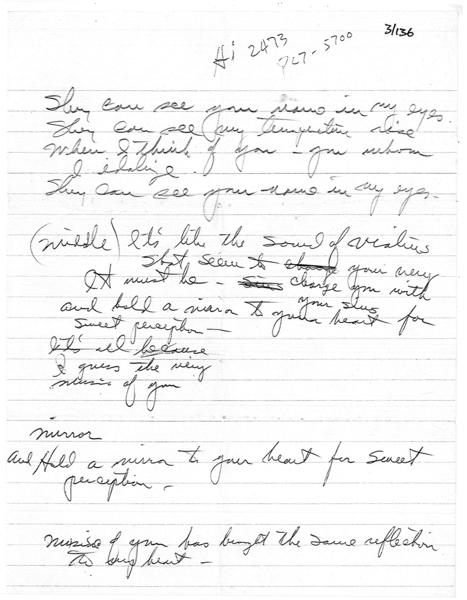 3/136
Hi 2473
767-5700
They can see your name in my eyes.
They can see my temperature rise
When I think of you - you whom
I idolize.
They can see your name in my eyes.
(middle) It's like the sound of violins
that seem to change your very
It must be - sins charge you with
your sins
and hold a mirror to your heart for
sweet perception -
It's all because
I guess the very
music of you
mirror
and Hold a mirror to your heart for sweet
perception -
music of you has brought the same reflection
to my heart -